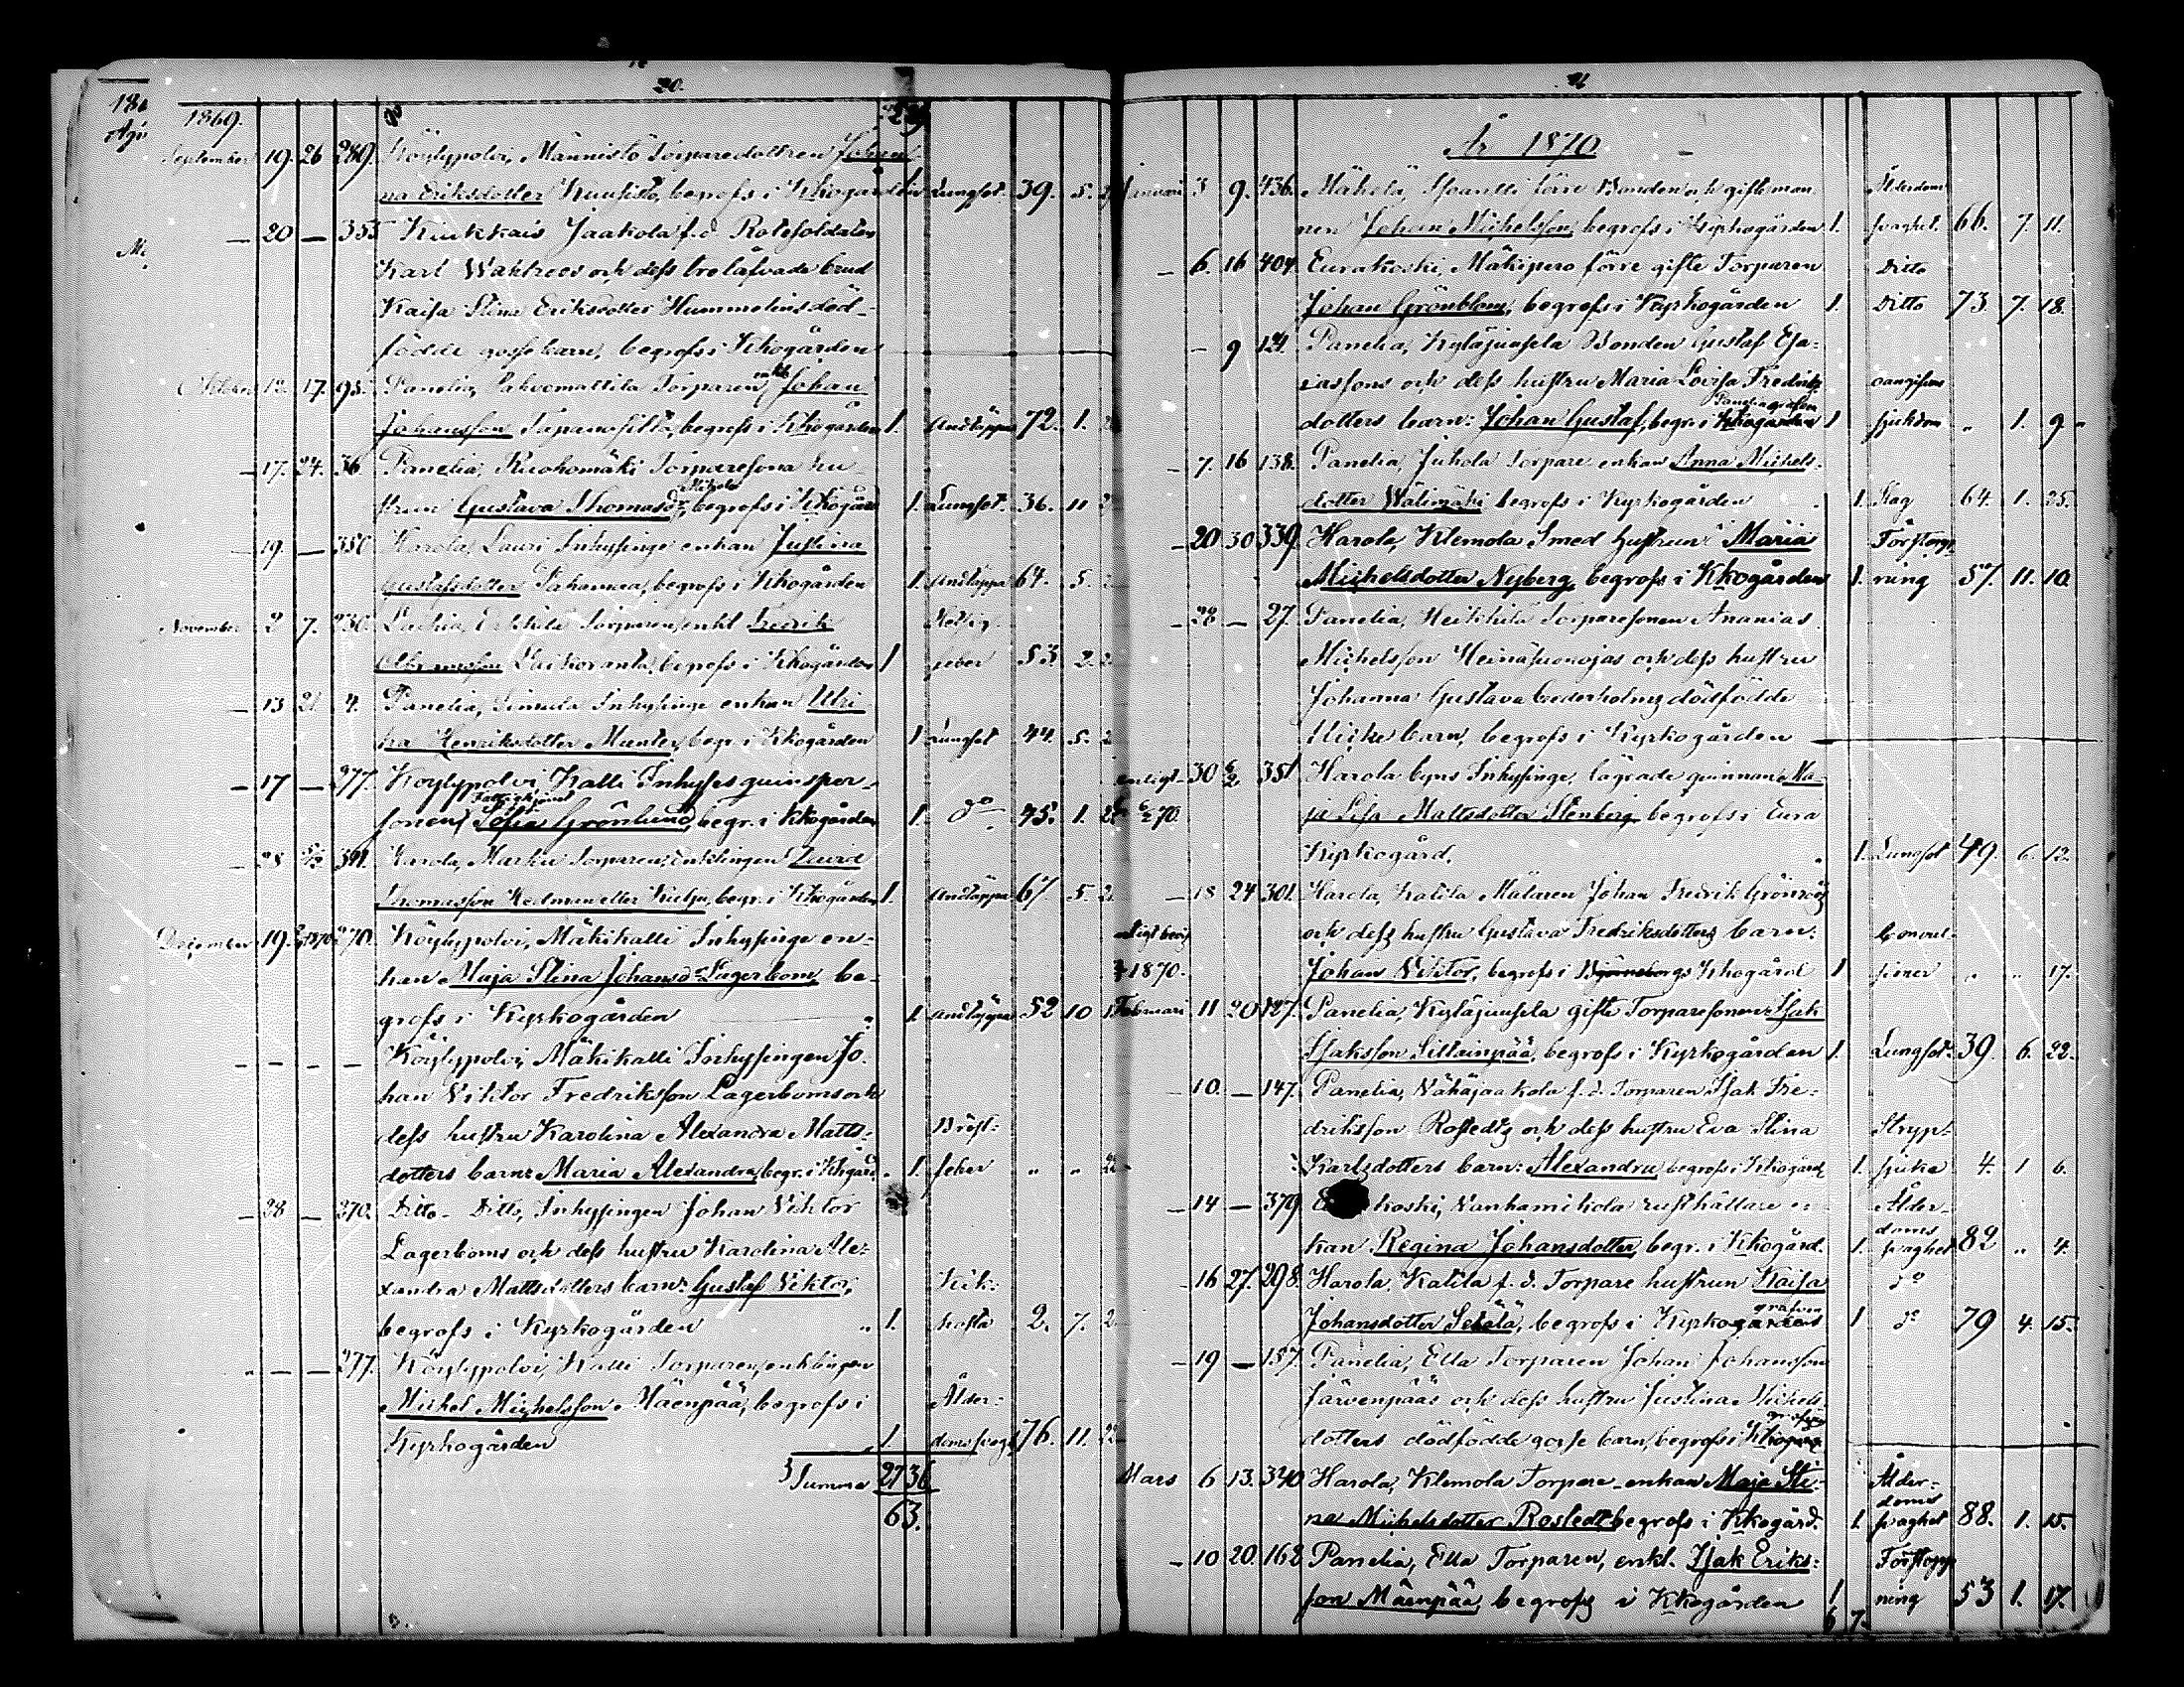 20.
1869.
September 19. 26 289. Köylypolvi, Männistö Torparedottren Johan-
na Eriksdotter Kuusisto, begrofs i Kkogården 1 Lungsot. 39. 5.
— 20 — 355 Kiukkais Jaakola f.d. Rotesoldaten
Karl Wahlroos och dess trolåfvade brud
Kaisa Stina Eriksdotter Hummelins död-
födde gossebarn, begrofs i Kkogården
October 12. 17. 95. Panelia, Torparen enkl. Johan
Johansson begrofs i Kkogården 1. Andtäppa 72. 1.
— 17. 24. 36. Panelia, Ruohomäki Torparesona hu-
strun Gustava Thomasdr begrofs i Kkogård 1. Lungsot. 36. 11
— 19. — 350 Harola, Lauri Inhysinge enkan Justina
Gustafsdotter begrofs i Kkogården 1. Andtäppa 64. 5.
November 2 7. 230. Torparen, enkl Fredrik
begrofs i Kkogården 1 feber 53 2.
— 13 21 4. Panelia, Simula Inhysinge enkan Ulri-
ka Henriksdotter Munter, begr. i Kkogården 1 Lungsot 44. 5.
— 17 — 277. Köylypolvi, Kalli Inhyses quinsper-
sonen Sofia Grönlund, begr. i Kkogården 1. do 45. 1.
— 28 391. Harola, Torparen, Enklingen
Thomasson begr. i Kkogården 1. Andtäppa 67. 5.
December 19. 1870 270. Köylypolvi, Mäkikalli Inhysinge en-
kan Maja Stina Johansdr Lagerbom, be-
grofs i Kyrkogården 1. Andtäppa 52 10
— — — — Köylypolvi, Mäkikalli Inhysingen Jo-
han Viktor Fredriksson Lagerboms och
dess hustru Karolina Alexandra Matts- Bröst-
dotters barn: Maria Alexandra, begr. i Kkgård. 1. feber „ „ 22
— 28 — 270. Ditto- Ditto, Inhysingen Johan Viktor
Lagerboms och dess hustru Karolina Ale-
xandra Mattsdotters barn: Gustaf Viktor, Kik-
begrofs i Kyrkogården „ 1. hosta 2. 7.
— — — 277. Köylypolvi, Kalli Torparen, enklingen
Michel Michelsson Mäenpää, begrofs i Ålder-
Kyrkogården 1. 76. 11. 22
Summa 27 36
63.
År 1870
Januari 3 9. 436. Mäkelä, förre Bonden och gifte man- Ålderdoms
nen Johan Michelsson, begrofs i Kyrkogården 1. svaghet. 66. 7. 11.
— 6. 16 404. Eurakoski, Mäkipero förre gifte Torparen Ditto
Johan Grönblom, begrofs i Kyrkogården 1. Ditto 73. 7. 18.
— 9 124. Panelia, Kyläjunsela Bonden Gustaf Esa-
iassons och dess hustru Maria Lovisa Fredriks-
dotters barn: Johan Gustaf, begr. i Kkogården 1 sjukdom „ 1. 9
— 7. 16 138. Panelia, Juhola Torpare enkan Anna Michels-
dotter Wälimäki begrofs i Kyrkogården 1. Slag 64. 1. 25.
— 20 30 339. Harola, Klemola Smed hustrun Maria Förstopp-
Michelsdotter Nyberg, begrofs i Kkogården 1. ning 57. 11. 10.
— 28 — 27. Panelia, Heikkilä Torparesonen Ananias
Michelsson Heinäsuonojas och dess hustru
Johanna Gustava Cederholms dödfödde
flicke barn, begrofs i Kyrkogården
enligt 30 6/2 351 Harola byns Inhysinge, lägrade quinnan Ma-
70. ja Lisa Mattsdotter Stenberg, begrofs i Eura
Kyrkogård. 1. Lungsot 49. 6. 12.
— 18 24 301. Harola, Katila Målaren Johan Fredrik Grönroos
och dess hustru Gustava Fredriksdotters barn: Convul-
1870. Johan Viktor, begrofs i Björneborgs Kkogård 1 sioner „ „ 17.
Februari 11 20 127. Panelia, Kyläjunsela gifte Torparesonen Isak
Isaksson Sillainpää, begrofs i Kyrkogården 1. Lungsot. 39. 6. 22.
— 10. — 147. Panelia, Vähäjaakola f.d. Torparen Isak Fre-
driksson Rostedts och dess hustru Eva Stina Stryp-
Karlsdotters barn: Alexandra begrofs i Kkogård 1. sjuka 4. 1 6.
— 14 — 379. koski, Vanhamikola rusthållare en- Ålder-
kan Regina Johansdotter, begr. i Kkogård. 1. doms svaghet 82 „ 4.
— 16 27. 298. Harola, Katila f.d. Torpare hustrun Kaisa do
Johansdotter Setälä, begrofs i Kyrkogården 1 do 79 4. 15.
— 19 — 157. Panelia, Ella Torparen Johan Johansson
Järvenpääs och dess hustru Justina Michels-
dotters dödfödde gosse barn, begrofs i
Mars 6 13. 340 Harola, Klemola Torpare-enkan Maja Sti- Ålder-
na Michelsdotter Rostedt begrofs i Kkogård. 1. doms svaghet 88. 1. 15.
— 10 20. 168 Panelia, Ella Torparen, enkl. Isak Eriks- Förstopp
son Mäenpää, begrofs i Kkogården 1 ning 53 1. 17.
6 7.